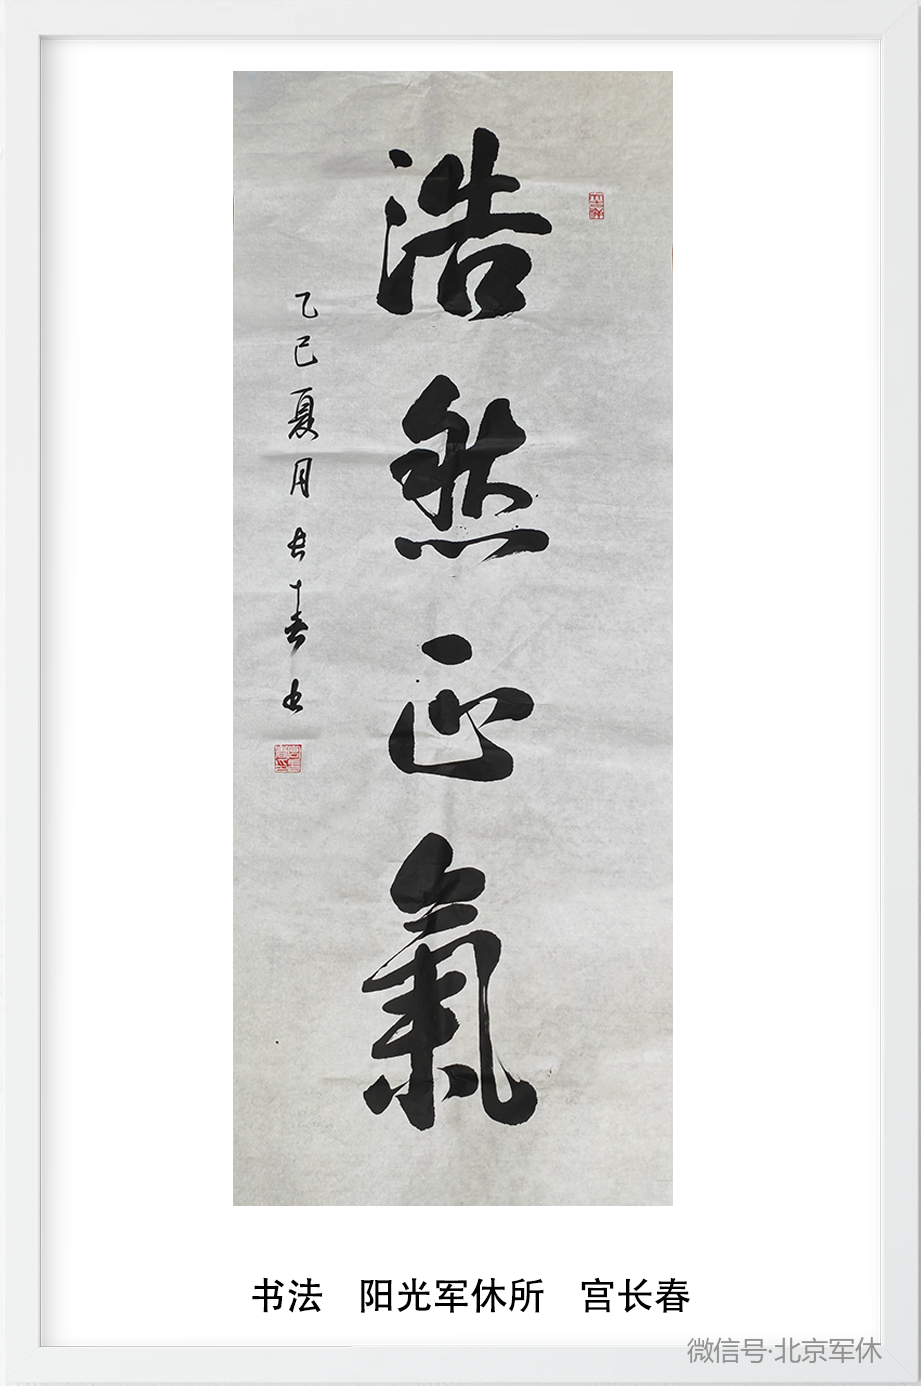 浩然正氣
乙巳夏月長春书
书法 阳光军休所 宫长春
微信号·北京军休